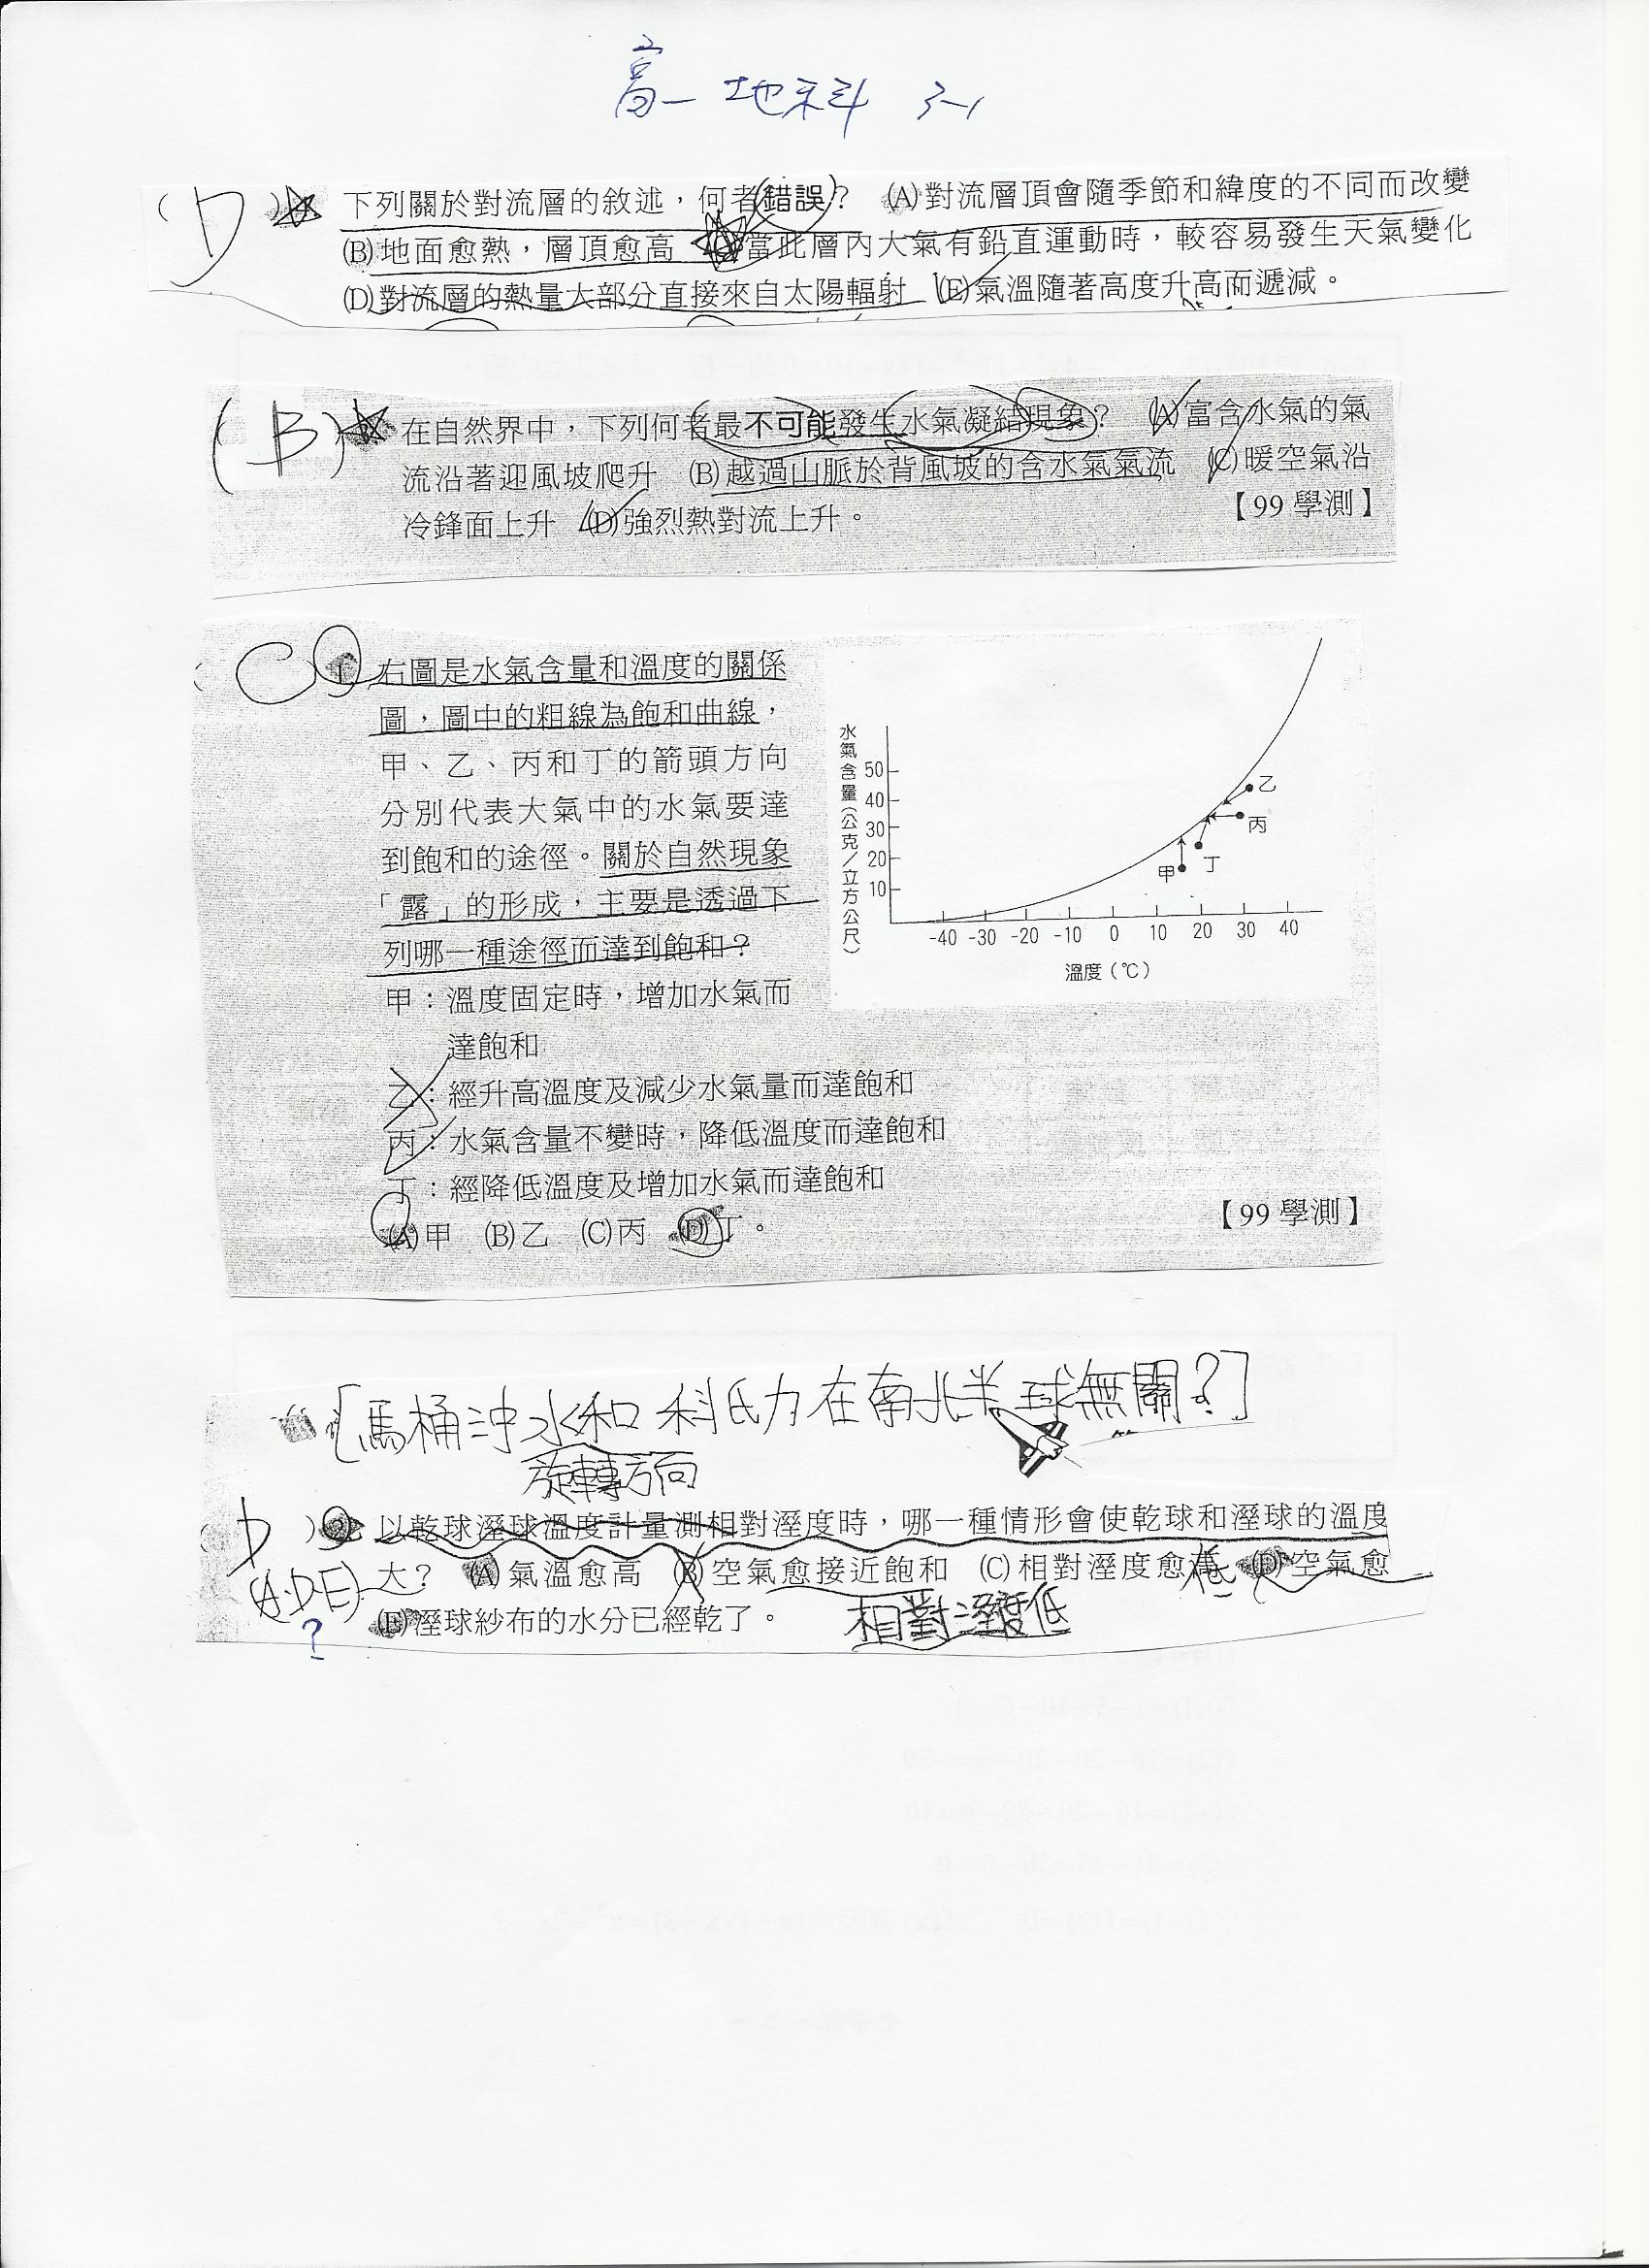 高一 地科 3-1
(D) 下列關於對流層的敘述，何者錯誤？ (A)對流層頂會隨季節和緯度的不同而改變
(B)地面愈熱，層頂愈高 (C)當此層內大氣有鉛直運動時，較容易發生天氣變化
(D)對流層的熱量大部分直接來自太陽輻射 (E)氣溫隨著高度升高而遞減。
(B) 在自然界中，下列何者最不可能發生水氣凝結現象？ (A)富含水氣的氣
流沿著迎風坡爬升 (B)越過山脈於背風坡的含水氣氣流 (C)暖空氣沿
冷鋒面上升 (D)強烈熱對流上升。
【99 學測】
C 1. 右圖是水氣含量和溫度的關係
圖，圖中的粗線為飽和曲線，
甲、乙、丙和丁的箭頭方向
分別代表大氣中的水氣要達
到飽和的途徑。關於自然現象
「露」的形成，主要是透過下
列哪一種途徑而達到飽和？
甲：溫度固定時，增加水氣而
達飽和
乙：經升高溫度及減少水氣量而達飽和
丙：水氣含量不變時，降低溫度而達飽和
丁：經降低溫度及增加水氣而達飽和
(A)甲 (B)乙 (C)丙 (D)丁。
【99 學測】
水氣含量(公克/立方公尺)
50
40
30
20
10
乙
丙
丁
甲
-40 -30 -20 -10 0 10 20 30 40
溫度(℃)
[馬桶沖水和科氏力在南北半球無關?]
旋轉方向
D ) 2. 以乾球溼球溫度計量測相對溼度時，哪一種情形會使乾球和溼球的溫度
大？ (A)氣溫愈高 (B)空氣愈接近飽和 (C)相對溼度愈高 低 (D)空氣愈
(A.D.E)
(E)溼球紗布的水分已經乾了。
相對溼度低
?